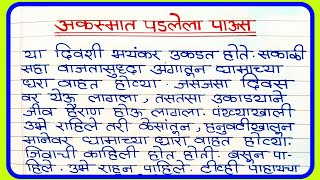 अकस्मात पडलेला पाऊस
या दिवशी भयंकर उकडत होते. सकाळी
सहा वाजतासुद्धा अंगातून घामाच्या
धारा वाहत होत्या. जसजसा दिवस
वर येऊ लागला, तसतसा उकाड्याने
जीव हैराण होऊ लागला. पंख्याखाली
उभे राहिले तरी केसांतून, हनुवटीखालून
मानेवर घामाच्या धारा वाहत होत्या.
जिवाची काहिली होत होती. बसून पा-
हिले. उभे राहून पाहिले. टीव्ही पाहायचा